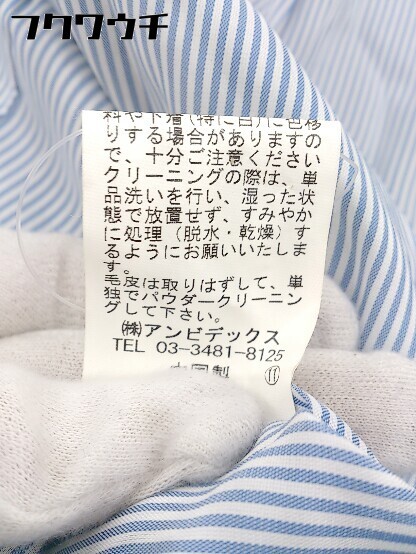 フクワウチ
料や下着(特に白)に色移
りする場合がありますの
で、十分ご注意ください
クリーニングの際は、単
品洗いを行い、湿った状
態で放置せず、すみやか
に処理（脱水・乾燥）す
るようにお願いいたしま
す。
毛皮は取りはずして、単
独でパウダークリーニン
グして下さい。
㈱アンビデックス
TEL 03-3481-8125
中国製 ⑪